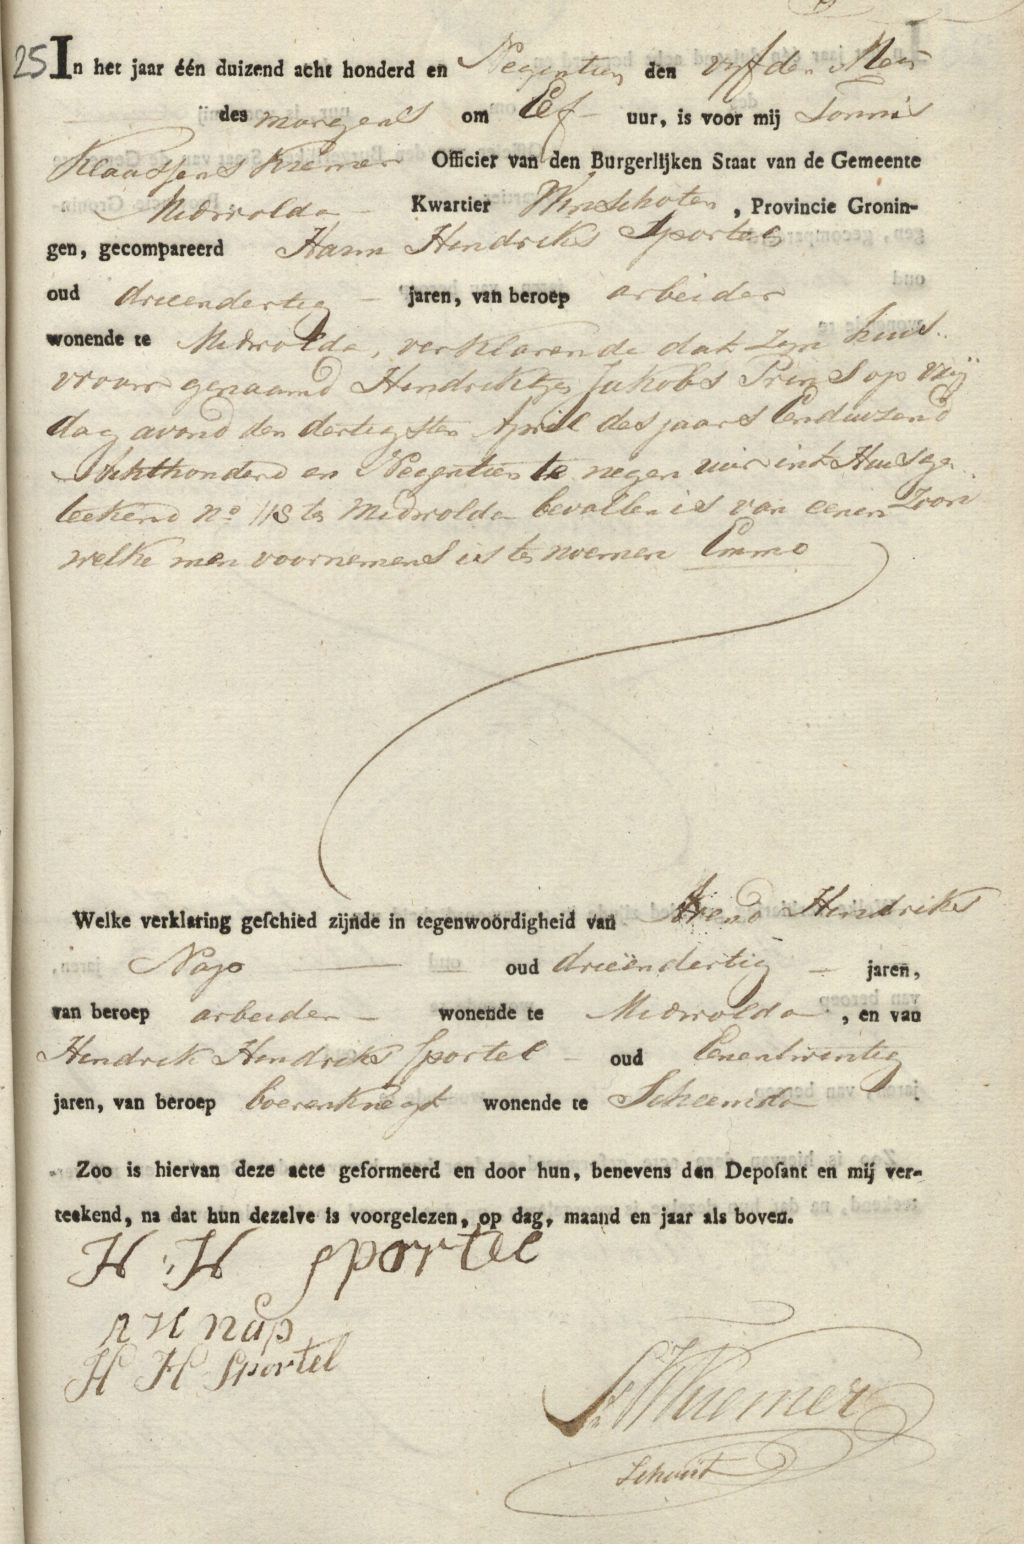 25 In het jaar één duizend acht honderd en Negentien den vyfden Mei
des morgens om Elf uur, is voor mij Tonnis
Klaassens Kremer Officier van den Burgerlijken Staat van de Gemeente
Midwolda Kwartier Winschoten, Provincie Gronin-
gen, gecompareerd Harm Hendriks Sportel
oud drieendertig jaren, van beroep arbeider
wonende te Midwolda, verklarende dat zyn huis-
vrouw genaamd Hendriktje Jakobs Prins op Vrij
dag avond den dertigsten April des jaars Eenduizend
Achthonderd en Neegentien te negen uur int Huis ge
teekend no 118 te Midwolda bevallen is van eenen Zoon
welke men voornemens is te noemen Emmo
Welke verklaring geschied zijnde in tegenwoordigheid van Arend Hendriks
Nap oud drieëndertig jaren,
van beroep arbeider wonende te Midwolda, en van
Hendrik Hendriks Sportel oud Eenentwintig
jaren, van beroep boerenknegt wonende te Scheemda
Zoo is hiervan deze acte geformeerd en door hun, benevens den Deposant en mij ver-
teekend, na dat hun dezelve is voorgelezen, op dag, maand en jaar als boven.
H : H sportel
A H nap
H H Sportel
Kremer
Schout